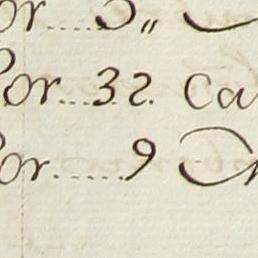 or.....5„
Por....32. Ca
Por......9